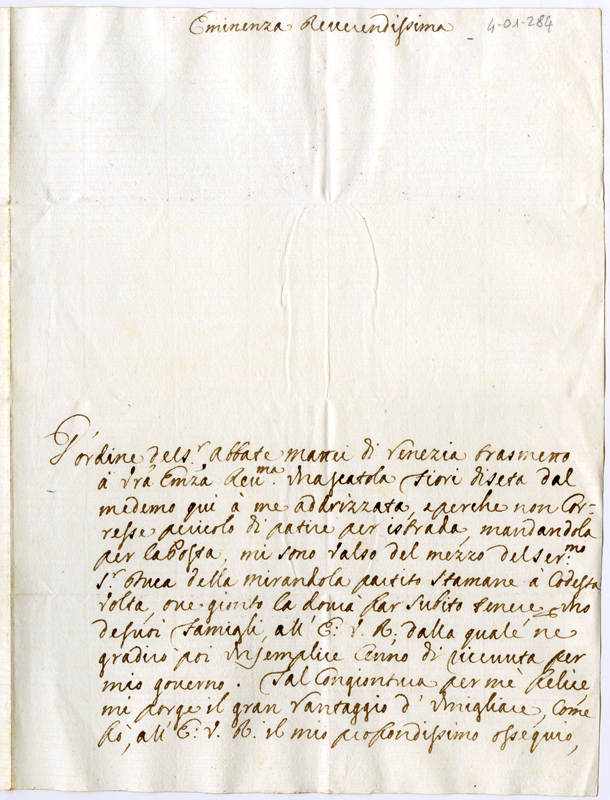 Eminenza Reverendissima
4-01-284
P ordine del S.r Abbate Manni di Venezia trasmetto
à Vrā Emzā Reu.ma Vna scatola Fiori di seta dal
medemo qui à me addrizzata, e perche non Cor=
resse pericolo di patire per istrada, mandandola
per la Posta, mi sono valso del mezzo del Ser.mo
S.r Duca della Mirandola partito stamane à Codesta
volta, oue gionto la dourà far subito tenere Vno
de suoi Famigli, all' E: V. R. dalla quale ne
gradirò poi Vn semplice Cenno di riceuuta per
mio gouerno. Tal Congiontura per mè felice
mi porge il gran Vantaggio d' Vmigliare, Come
fò, all' E: V. R. il mio profondissimo ossequio,